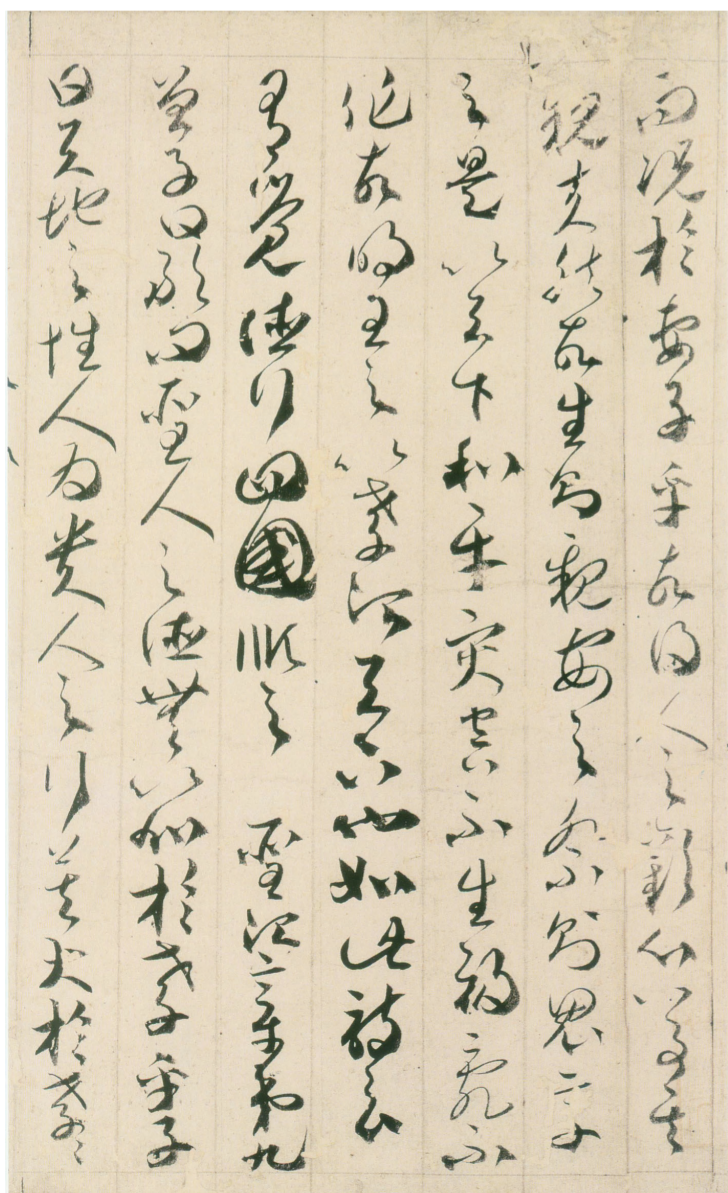 而況於妻子乎故得人之歡心以事其
親夫然故生則親安之祭則鬼享
之是以天下和平災害不生禍亂不
作故明王之以孝治天下也如此詩云
有覺德行四國順之　聖治章第九
曾子曰敢問聖人之德無以加於孝乎子
曰天地之性人為貴人之行莫大於孝〻